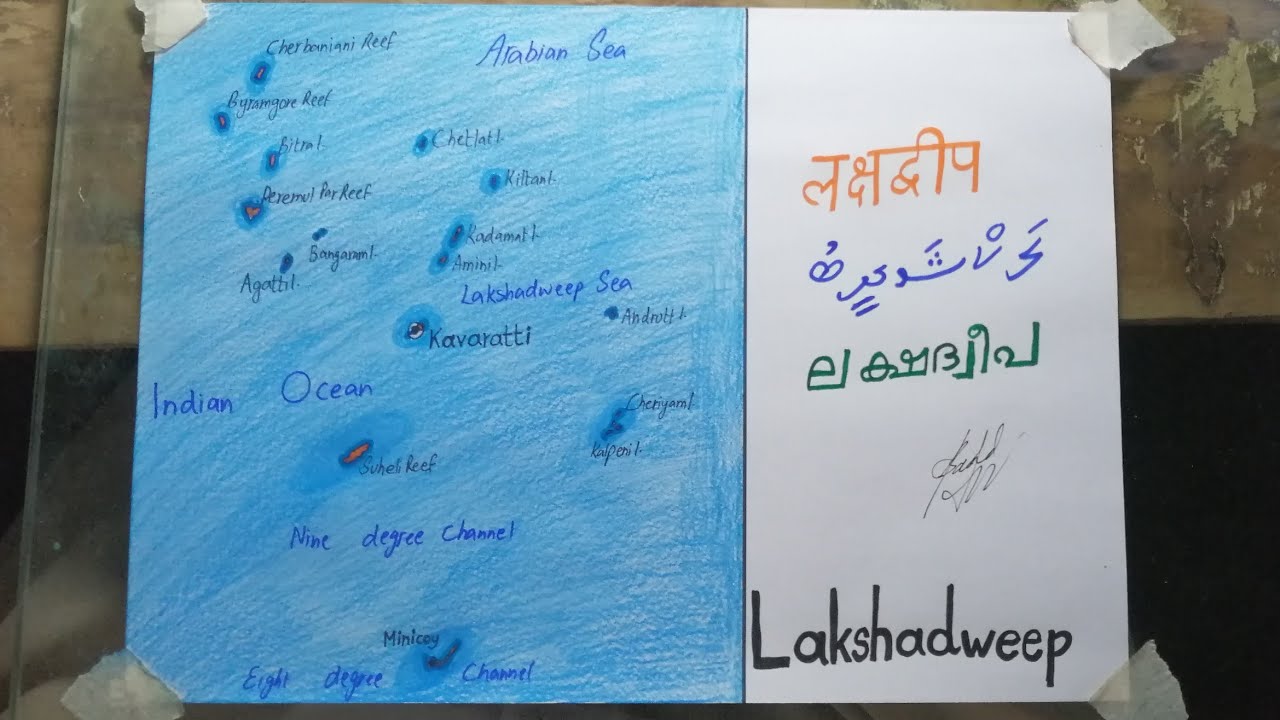 Cherbaniani Reef
Arabian Sea
Byramgore Reef
Bitra I.
Chetlat I.
Kiltan I.
Peremul Par Reef
Bangaram I.
Kadamatt I.
Amini I.
Agatti I.
Lakshadweep Sea
Andrott I.
Kavaratti
Indian Ocean
Cheriyam I.
Kalpeni I.
Suheli Reef
Nine degree Channel
Minicoy
Eight degree Channel
लक्षद्वीप
ലക്ഷദ്വീപ
Lakshadweep